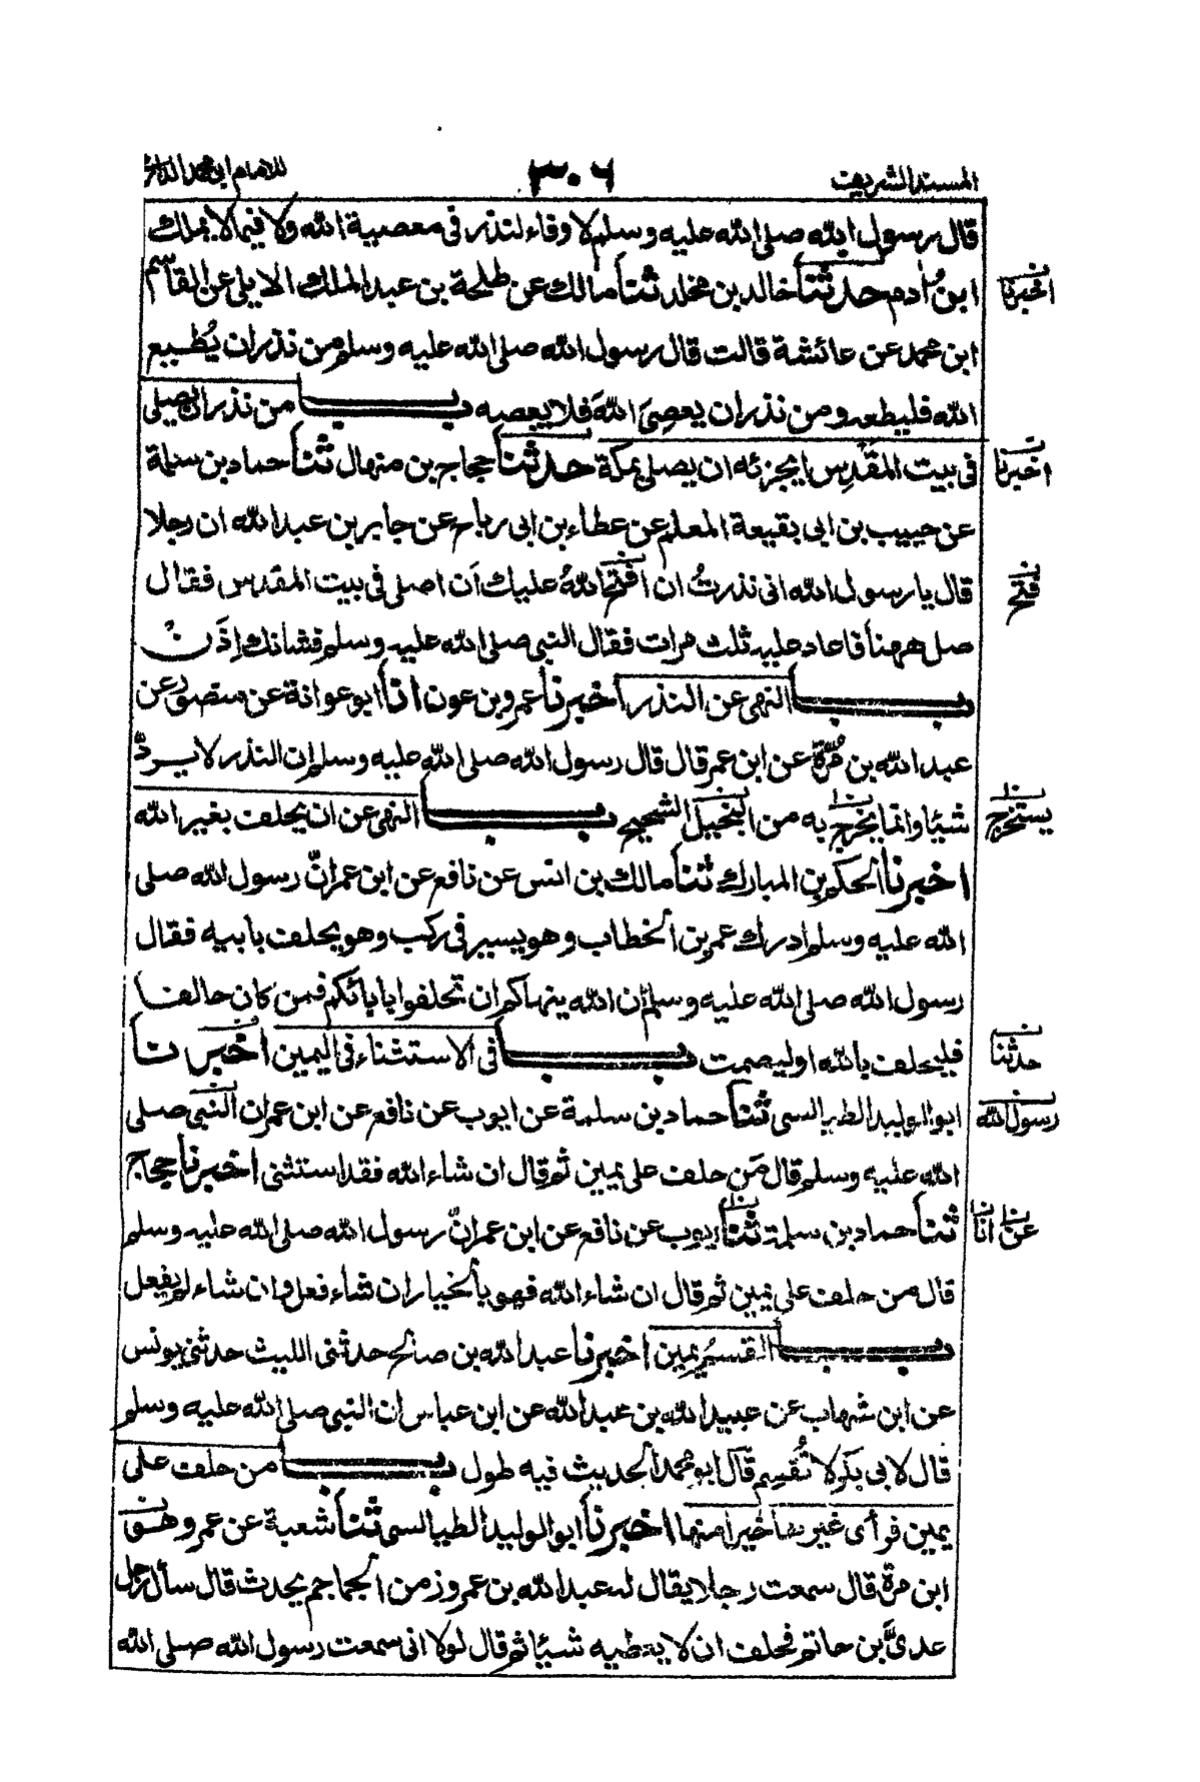 المسند الشريف
٣٠٦
للامام ابی محمد الدارمی
قال رسول الله صلی الله عليه وسلم لا وفاء لنذر فی معصية الله ولا فيما لا يملك
ابنُ اٰدم حدثنا خالد بن مخلد ثنا مالك عن طلحة بن عبد الملك الايلی عن القاسم
اخبرنا
ابن محمد عن عائشة قالت قال رسول الله صلی الله عليه وسلم من نذر ان يُطيع
الله فليطعه ومن نذر ان يعصِیَ اللهَ فلا يعصه باب من نذر ان يصلی
فی بيت المقدِس ايجزئه ان يصلی بمكة حدثنا حجاج بن منهال ثنا حماد بن سلمة
اخبرنا
عن حبيب بن ابی بقيعة المعلم عن عطاء بن ابی رباح عن جابر بن عبد الله ان رجلا
قال يا رسول الله انی نذرتُ ان افتح اللهُ عليك اَن اصلی فی بيت المقدس فقال
فتح
صل ههنا فاعاد عليه ثلث مرات فقال النبی صلی الله عليه وسلم فشانك اِذَن
باب النهی عن النذر اخبرنا عمرو بن عون انا ابو عوانة عن منصور عن
عبد الله بن مُرّة عن ابن عمر قال قال رسول الله صلی الله عليه وسلم ان النذر لا يردّ
شيئا وانما يخرج به من البخيل الشحيح باب النهی عن ان يحلف بغير الله
يستخرج
اخبرنا الحكم بن المبارك ثنا مالك بن انس عن نافع عن ابن عمر انّ رسول الله صلی
الله عليه وسلم ادرك عمر بن الخطاب وهو يسير فی ركب وهو يحلف بابيه فقال
رسول الله صلی الله عليه وسلم اِن الله ينهاكم ان تحلفوا بابائكم فمن كان حالفا
فليحلف بالله او ليصمت باب فی الاستثناء فی اليمين اخبرنا
حدثنا
ابو الوليد الطيالسی ثنا حماد بن سلمة عن ايوب عن نافع عن ابن عمر ان النبی صلی
رسول الله
الله عليه وسلم قال مَن حلف علی يمين ثم قال ان شاء الله فقد استثنی اخبرنا حجاج
ثنا حماد بن سلمة ثنا ايوب عن نافع عن ابن عمر انّ رسول الله صلی الله عليه وسلم
عن انا
قال من حلف علی يمين ثم قال ان شاء الله فهو بالخيار ان شاء فعل وان شاء لم يفعل
باب القسمُ يمين اخبرنا عبد الله بن صالح حدثنی الليث حدثنی يونس
عن ابن شهاب عن عبيد الله بن عبد الله عن ابن عباس ان النبی صلی الله عليه وسلم
قال لابی بكر لا تُقسِم قال ابو محمد الحديث فيه طول باب من حلف علی
يمين فرأی غيرها خيرا منها اخبرنا ابو الوليد الطيالسی ثنا شعبة عن عمرو هو
ابن مرة قال سمعت رجلا يقال له عبد الله بن عمرو زمن الجماجم يحدث قال سأل رجل
عدیَّ بن حاتم فحلف ان لا يعطيه شيئا ثم قال لولا انی سمعت رسول الله صلی الله